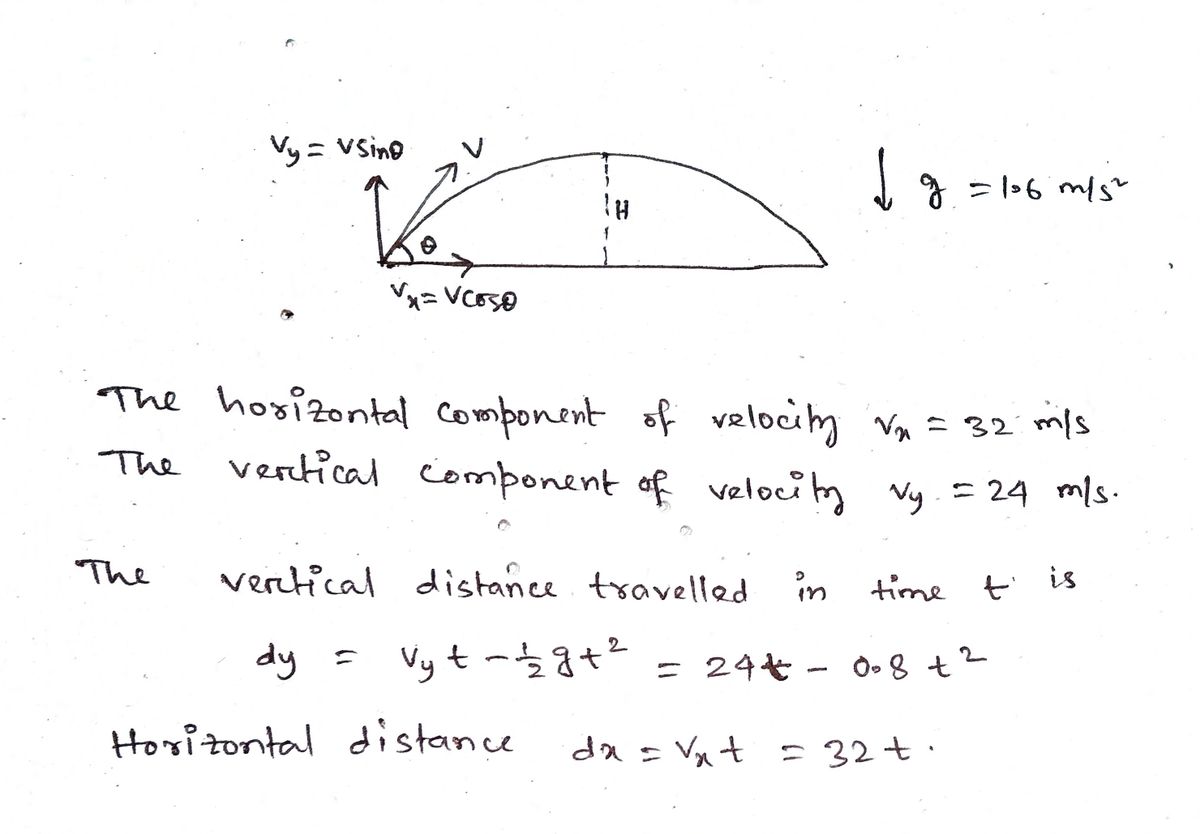 Vy = VSinθ
V
H
θ
Vx = VCosθ
↓ g = 1.6 m/s²
The horizontal component of velocity Vx = 32 m/s
The vertical component of velocity Vy = 24 m/s.
The vertical distance travelled in time t is
dy = Vy t - ½ g t² = 24t - 0.8 t²
Horizontal distance dx = Vx t = 32 t.